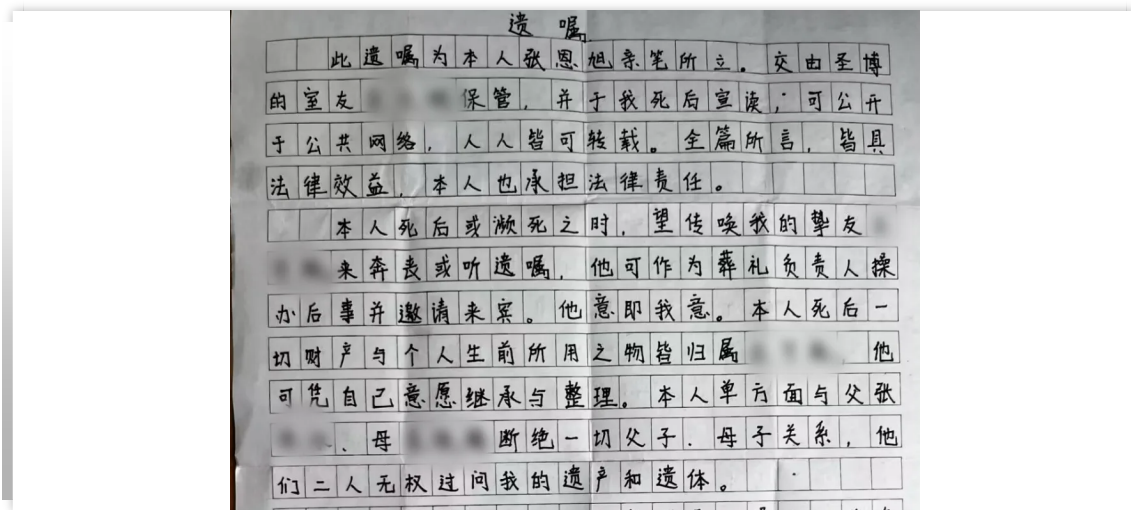 遗嘱
此遗嘱为本人张恩旭亲笔所立。交由圣博
的室友 保管，并于我死后宣读，可公开
于公共网络，人人皆可转载。全篇所言，皆具
法律效益，本人也承担法律责任。
本人死后或濒死之时，望传唤我的挚友
来奔丧或听遗嘱，他可作为葬礼负责人操
办后事并邀请来宾。他意即我意。本人死后一
切财产与个人生前所用之物皆归属 ，他
可凭自己意愿继承与整理。本人单方面与父张
、母 断绝一切父子、母子关系，他
们二人无权过问我的遗产和遗体。